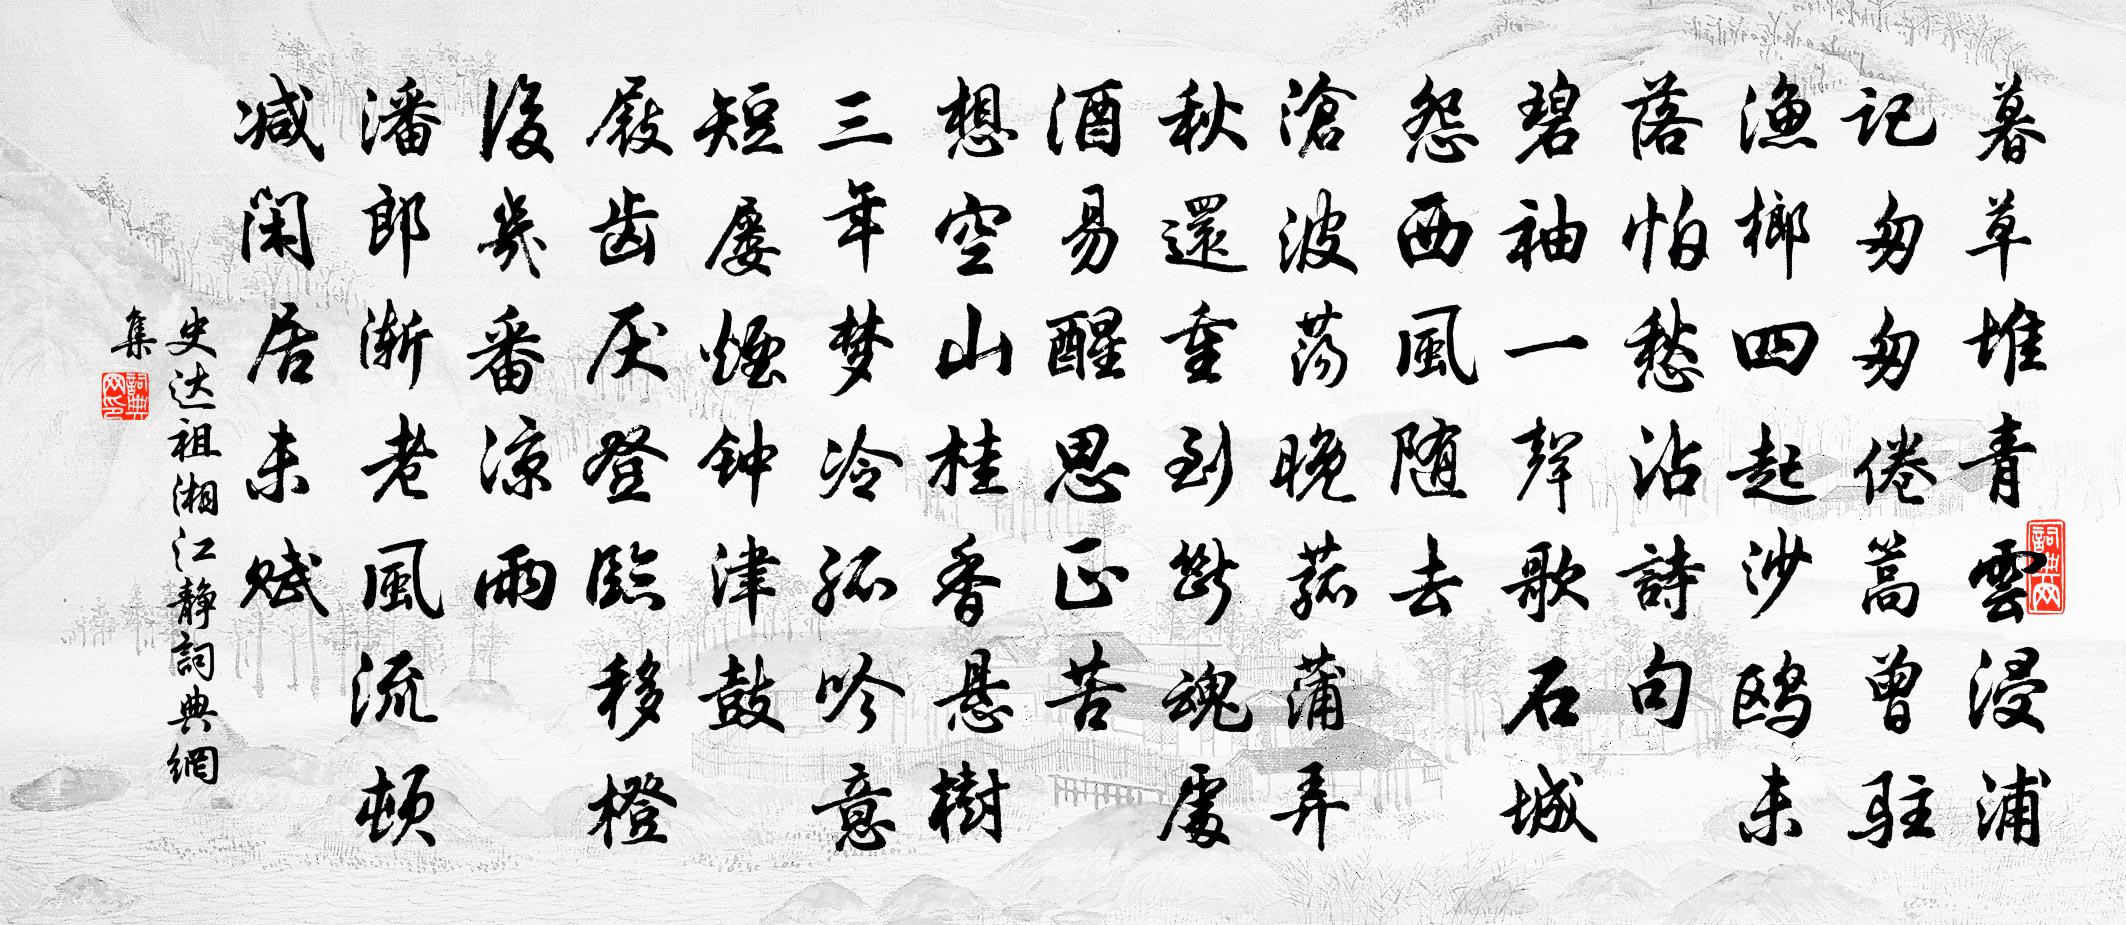 暮草堆青雲浸浦
记匆匆倦篙曾駐
渔榔四起沙鸥未
落怕愁沾詩句
碧袖一聲歌石城
怨西風随去
滄波荡晚菰蒲弄
秋還重到斷魂處
酒易醒思正苦
想空山桂香悬樹
三年梦冷孤吟意
短屡煙钟津鼓
屐齿厌登臨移橙
後幾番涼雨
潘郎渐老風流顿
减闲居未赋
史达祖湘江静詞典網
集
詞典网
詞典网印